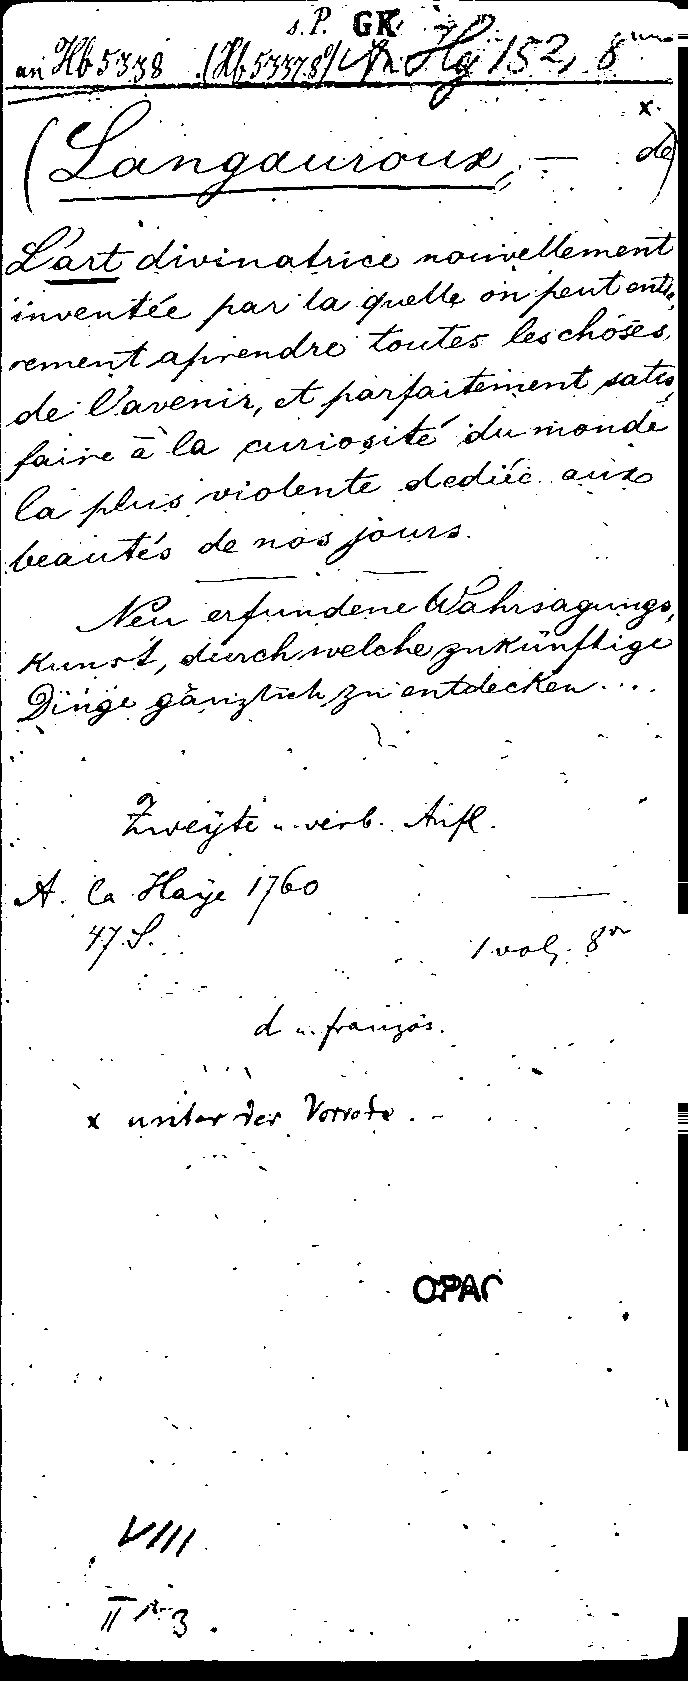 s. P. GK
an Hb 5338 (Hb 5337 8°) Hg 152, 8
x.
(Langauroux, — de)
L'art divinatrice nouvellement
inventée par la quelle on peut entie,
rement aprendre toutes les choses,
de l'avenir, et parfaitement satis,
faire à la curiosité du monde
la plus violente dediée aux
beautés de nos jours.
Neu erfundene Wahrsagungs,
kunst, durch welche zukünftige
Dinge gänzlich zu entdecken...
Zweyte u. verb. Aufl.
A. la Haye 1760
47 S.
1 vol. 8vo
d u. französ.
x unter der Vorrede.
OPAC
VIII
II 3.